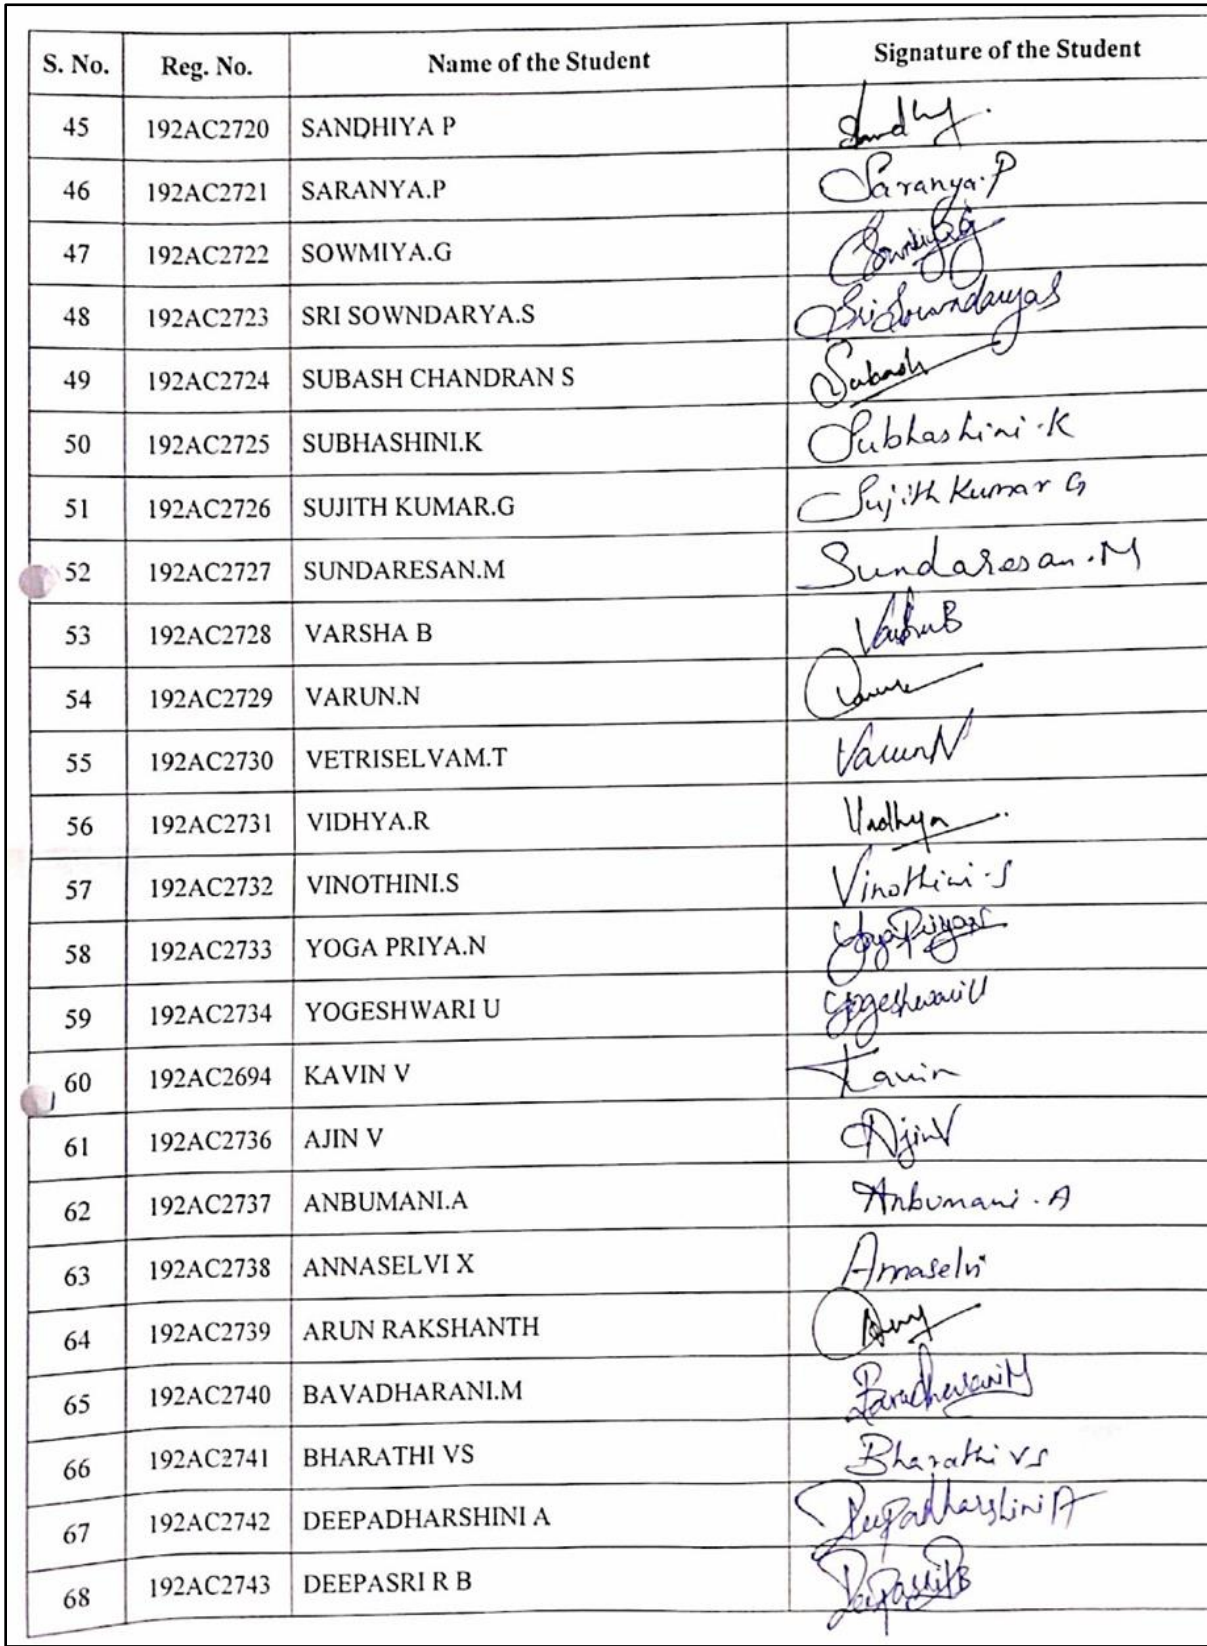 S. No. Reg. No. Name of the Student Signature of the Student
45 192AC2720 SANDHIYA P Sandhy.
46 192AC2721 SARANYA.P Saranya.P
47 192AC2722 SOWMIYA.G
48 192AC2723 SRI SOWNDARYA.S Sri Sowndarya S
49 192AC2724 SUBASH CHANDRAN S Subash
50 192AC2725 SUBHASHINI.K Subhashini.K
51 192AC2726 SUJITH KUMAR.G Sujith Kumar G
52 192AC2727 SUNDARESAN.M Sundaresan.M
53 192AC2728 VARSHA B Varsha B
54 192AC2729 VARUN.N
55 192AC2730 VETRISELVAM.T Varun N
56 192AC2731 VIDHYA.R Vidhya
57 192AC2732 VINOTHINI.S Vinothini.S
58 192AC2733 YOGA PRIYA.N
59 192AC2734 YOGESHWARI U Yogeshwari U
60 192AC2694 KAVIN V Kavin
61 192AC2736 AJIN V Ajin V
62 192AC2737 ANBUMANI.A Anbumani.A
63 192AC2738 ANNASELVI X Annaselvi
64 192AC2739 ARUN RAKSHANTH
65 192AC2740 BAVADHARANI.M
66 192AC2741 BHARATHI VS Bharathi VS
67 192AC2742 DEEPADHARSHINI A Deepadharshini A
68 192AC2743 DEEPASRI R B